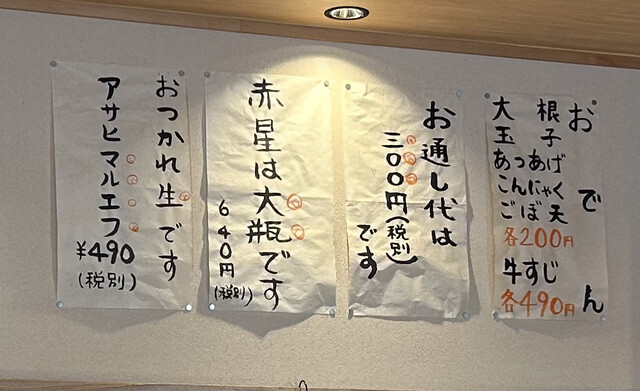 おでん
大根
玉子
あつあげ
こんにゃく
ごぼ天
各200円
牛すじ
各490円
お通し代は
三〇〇円(税別)
です
赤星は大瓶です
640円(税別)
おつかれ生です
アサヒマルエフ
¥490
(税別)